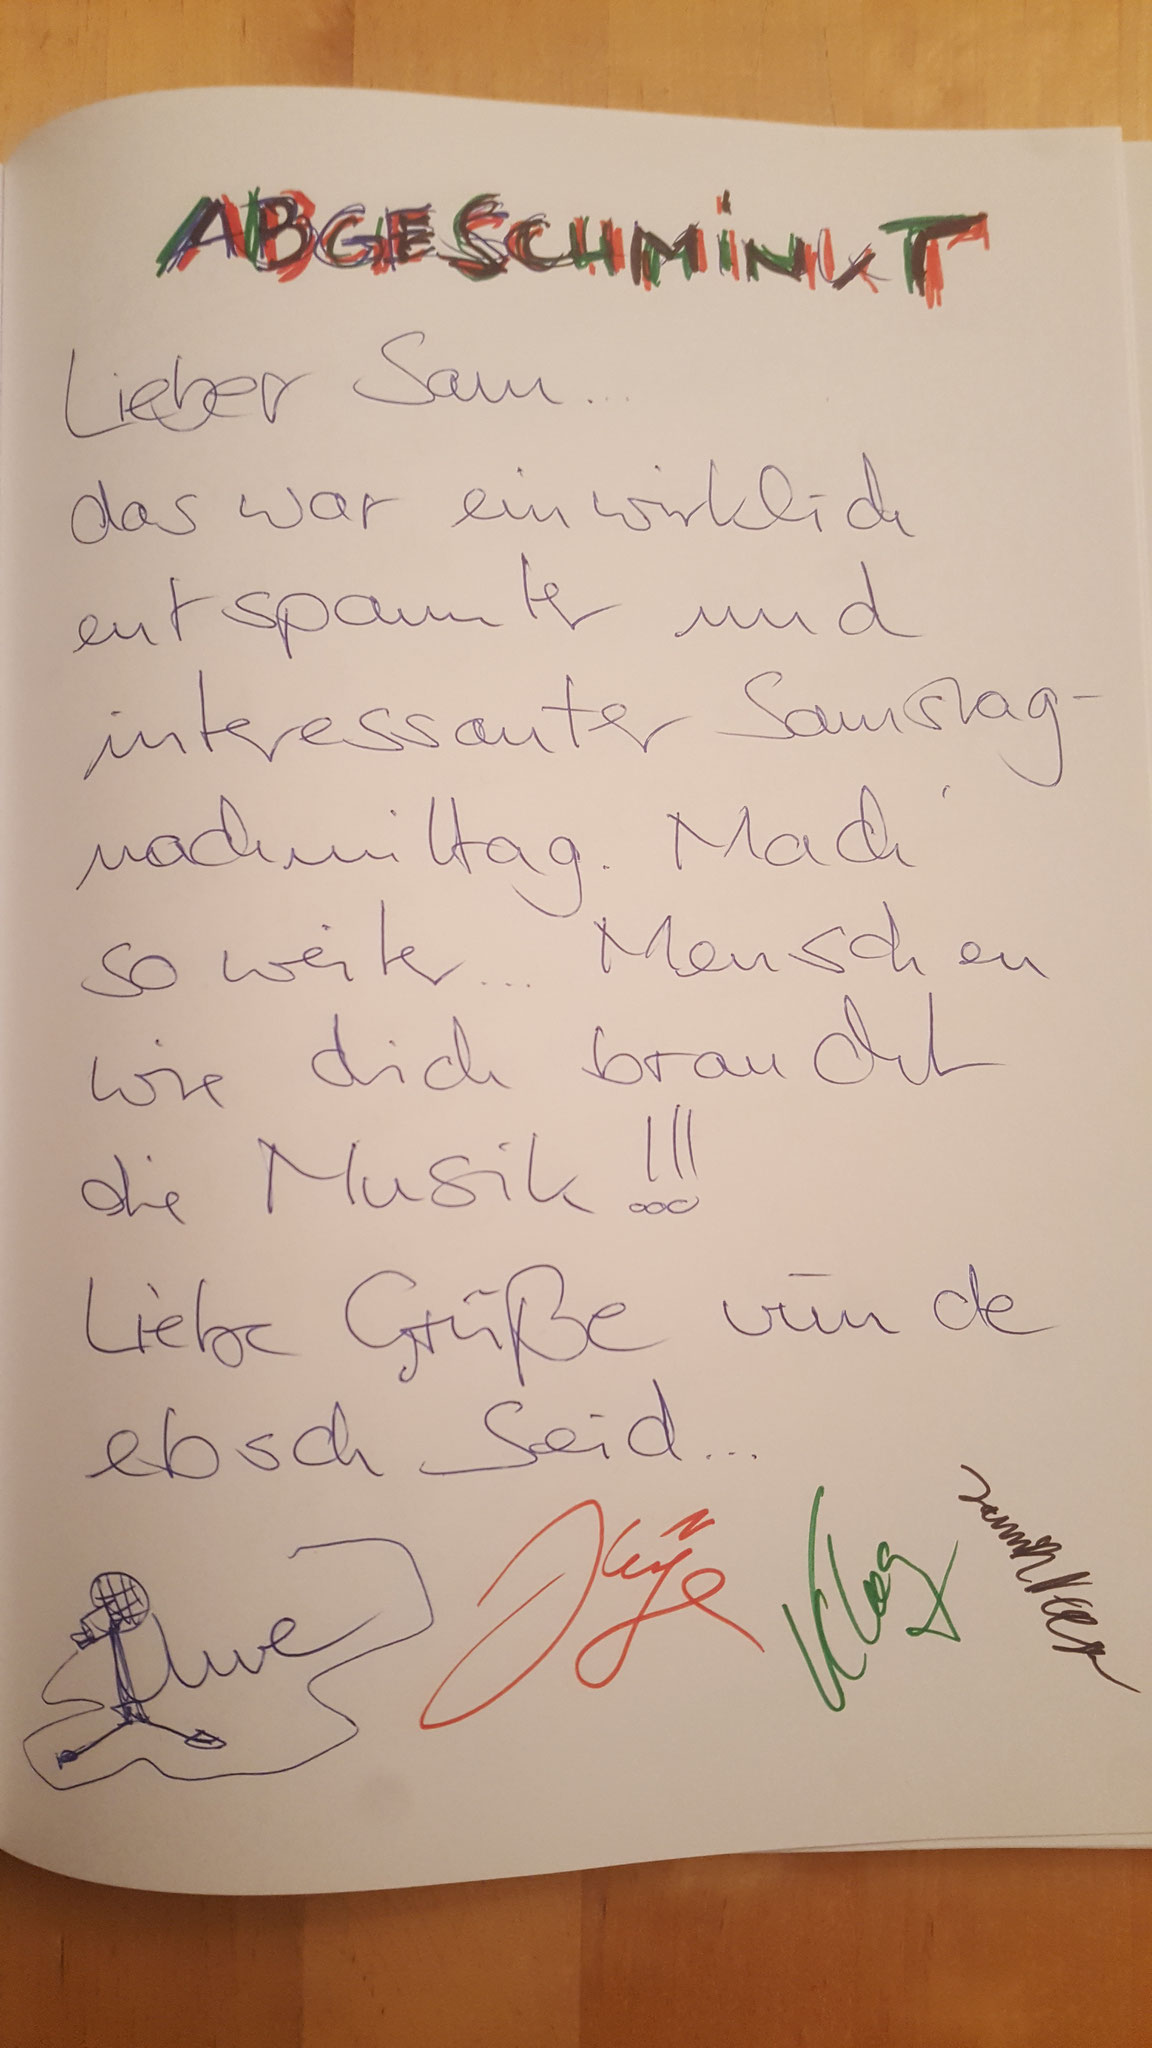 ABGESCHMINKT
Lieber Sam...
das war ein wirklich
entspannter und
interessanter Samstag-
nachmittag. Mach'
so weiter... Menschen
wie dich braucht
die Musik!!!
Liebe Grüße vun de
ebsch Seid...
Uwe